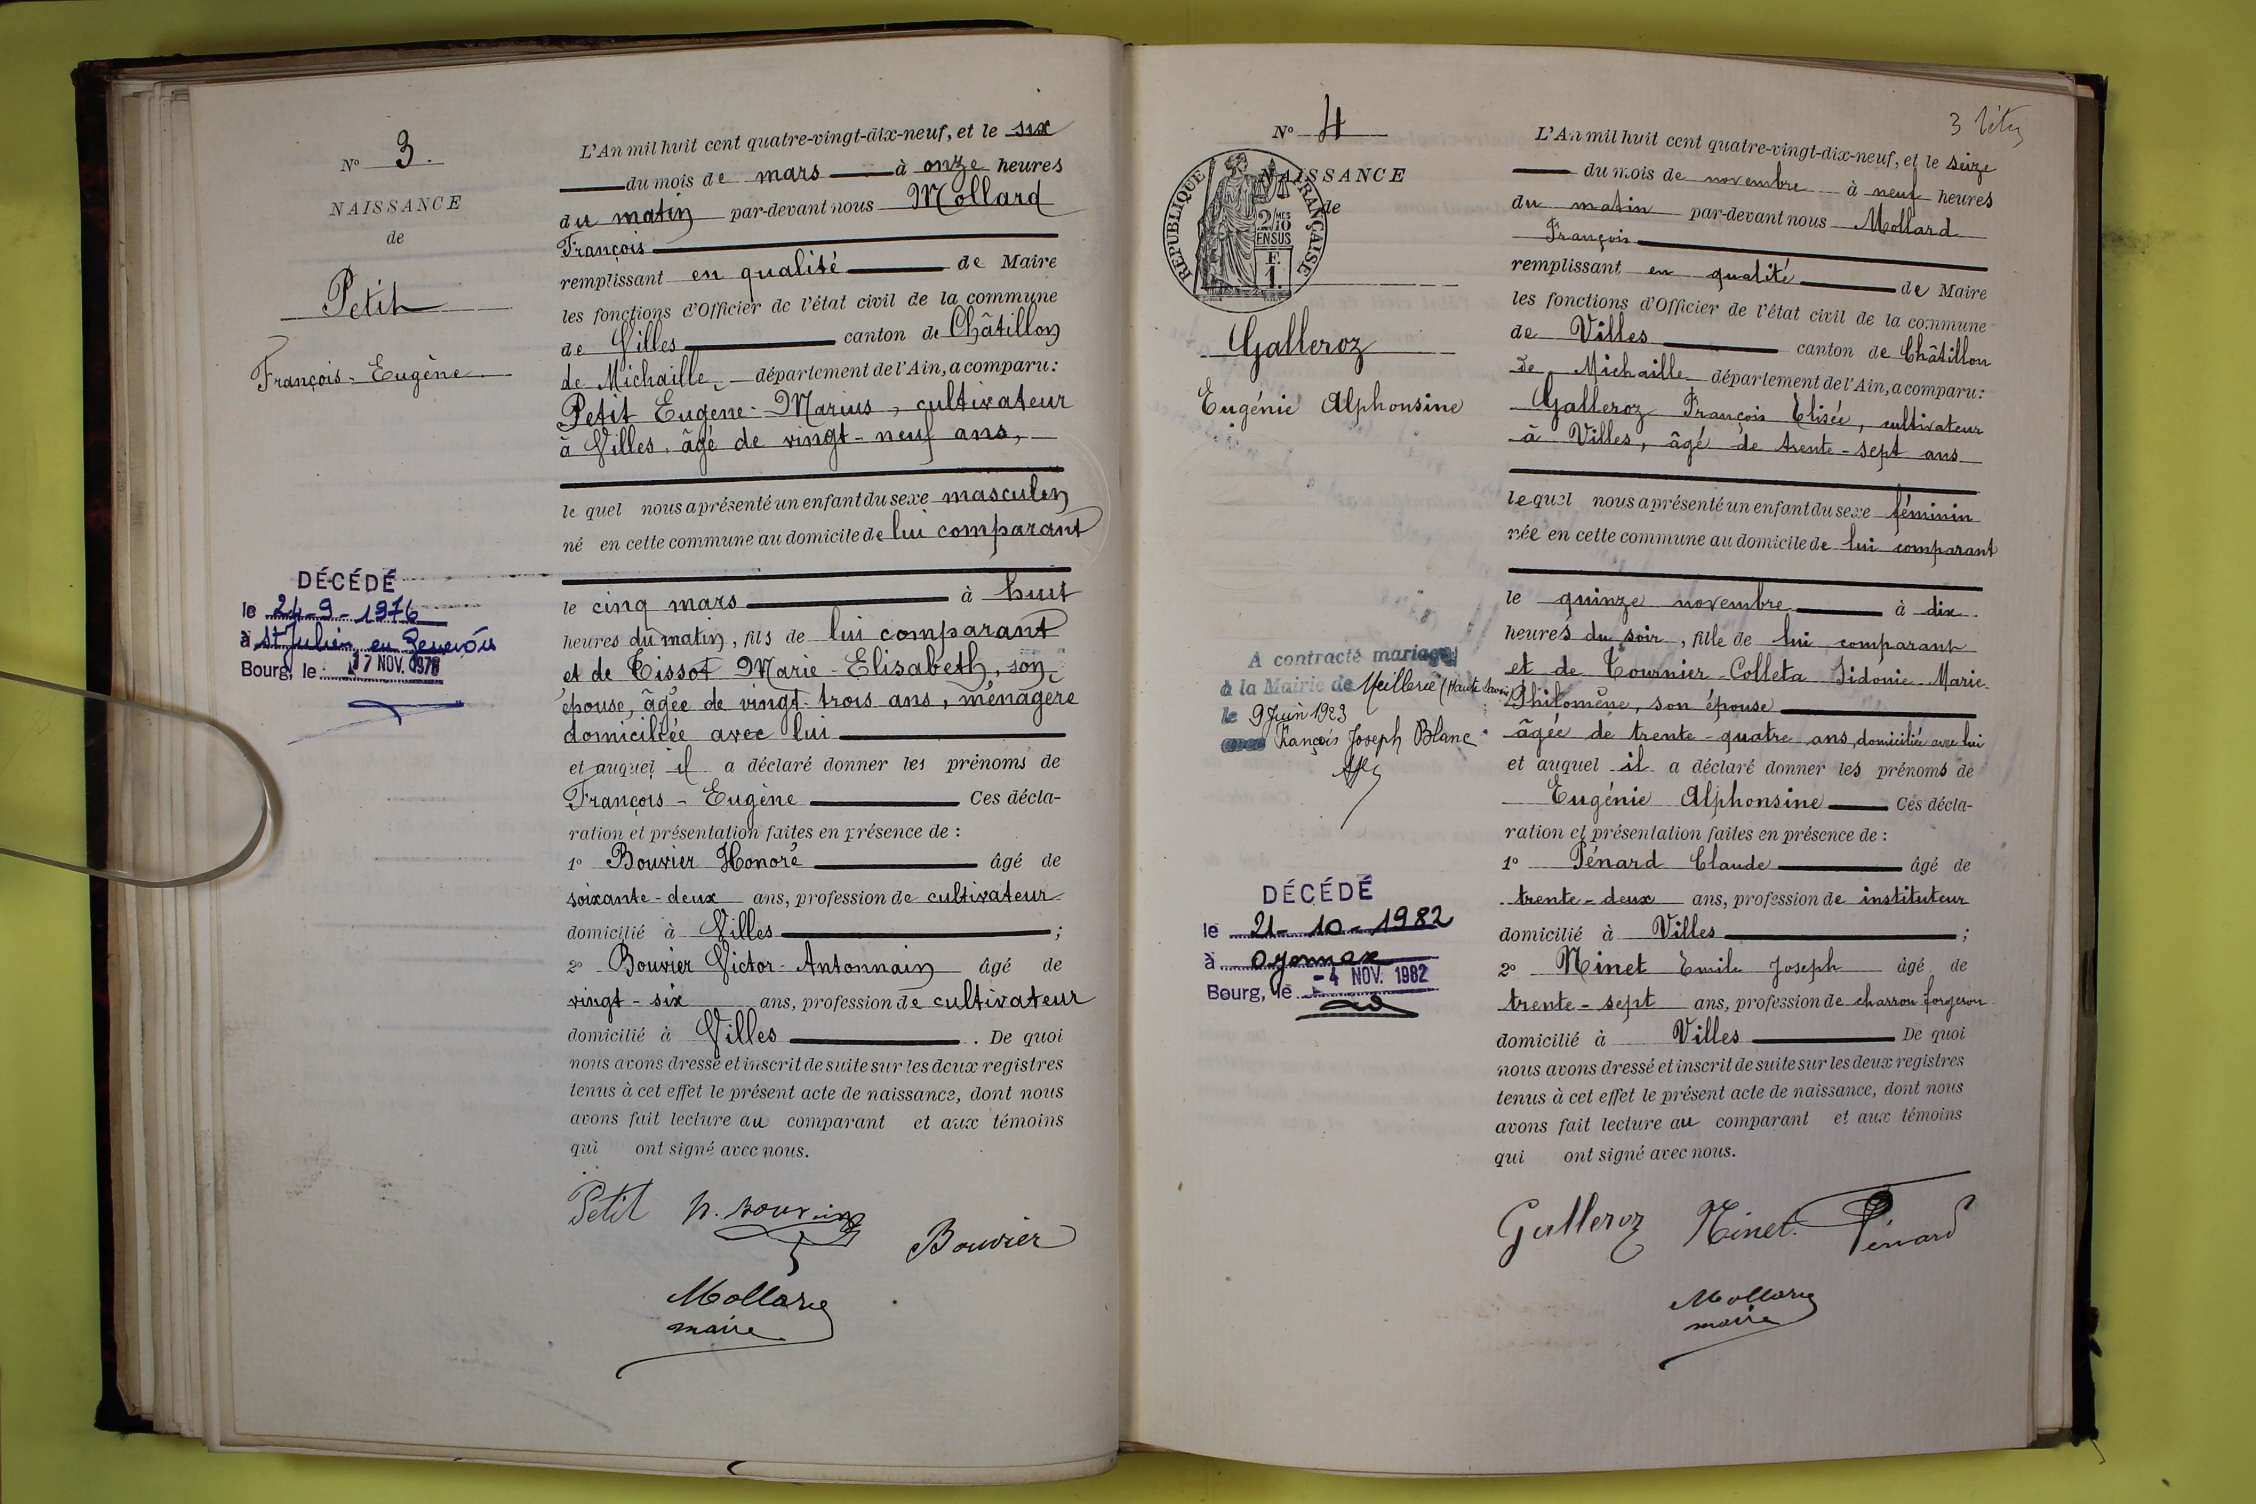 N° 3.
NAISSANCE
de
Petit
François-Eugène
DÉCÉDÉ
le 24-9-1976
à St Julien en Genevois
Bourg, le 17 NOV. 1976
L'An mil huit cent quatre-vingt-dix-neuf, et le six
du mois de mars à onze heures
du matin par-devant nous Mollard
François
remplissant en qualité de Maire
les fonctions d'Officier de l'état civil de la commune
de Villes canton de Châtillon
de Michaille, département de l'Ain, a comparu:
Petit Eugène-Marius, cultivateur
à Villes, âgé de vingt-neuf ans,
le quel nous a présenté un enfant du sexe masculin
né en cette commune au domicile de lui comparant
le cinq mars à huit
heures du matin, fils de lui comparant
et de Tissot Marie-Elisabeth, son
épouse, âgée de vingt-trois ans, ménagère
domiciliée avec lui
et auquel il a déclaré donner les prénoms de
François-Eugène Ces décla-
ration et présentation faites en présence de :
1° Bouvier Honoré âgé de
soixante-deux ans, profession de cultivateur
domicilié à Villes ;
2° Bouvier Victor-Antonnain âgé de
vingt-six ans, profession de cultivateur
domicilié à Villes . De quoi
nous avons dressé et inscrit de suite sur les deux registres
tenus à cet effet le présent acte de naissance, dont nous
avons fait lecture au comparant et aux témoins
qui ont signé avec nous.
Petit h. Bouvier
Bouvier
Mollard
maire
N° 4
NAISSANCE
de
RÉPUBLIQUE FRANÇAISE
2/10 MES
EN SUS
F.
1.
Galleroz
Eugénie Alphonsine
A contracté mariage
à la Mairie de Meillerie (Haute Savoie)
le 9 Juin 1923
avec François Joseph Blanc
DÉCÉDÉ
le 21-10-1982
à Oyonnax
Bourg, le -4 NOV. 1982
L'An mil huit cent quatre-vingt-dix-neuf, et le seize
du mois de novembre à neuf heures
du matin par-devant nous Mollard
François
remplissant en qualité de Maire
les fonctions d'Officier de l'état civil de la commune
de Villes canton de Châtillon
de Michaille département de l'Ain, a comparu:
Galleroz François Elisée, cultivateur
à Villes, âgé de trente-sept ans
le quel nous a présenté un enfant du sexe féminin
née en cette commune au domicile de lui comparant
le quinze novembre à dix
heures du soir, fille de lui comparant
et de Tournier-Colleta Sidonie-Marie
Philomène, son épouse
âgée de trente-quatre ans, domiciliée avec lui
et auquel il a déclaré donner les prénoms de
Eugénie Alphonsine Ces décla-
ration et présentation faites en présence de :
1° Pénard Claude âgé de
trente-deux ans, profession de instituteur
domicilié à Villes ;
2° Ninet Emile Joseph âgé de
trente-sept ans, profession de charron forgeron
domicilié à Villes De quoi
nous avons dressé et inscrit de suite sur les deux registres
tenus à cet effet le présent acte de naissance, dont nous
avons fait lecture au comparant et aux témoins
qui ont signé avec nous.
Galleroz Ninet Pénard
Mollard
maire